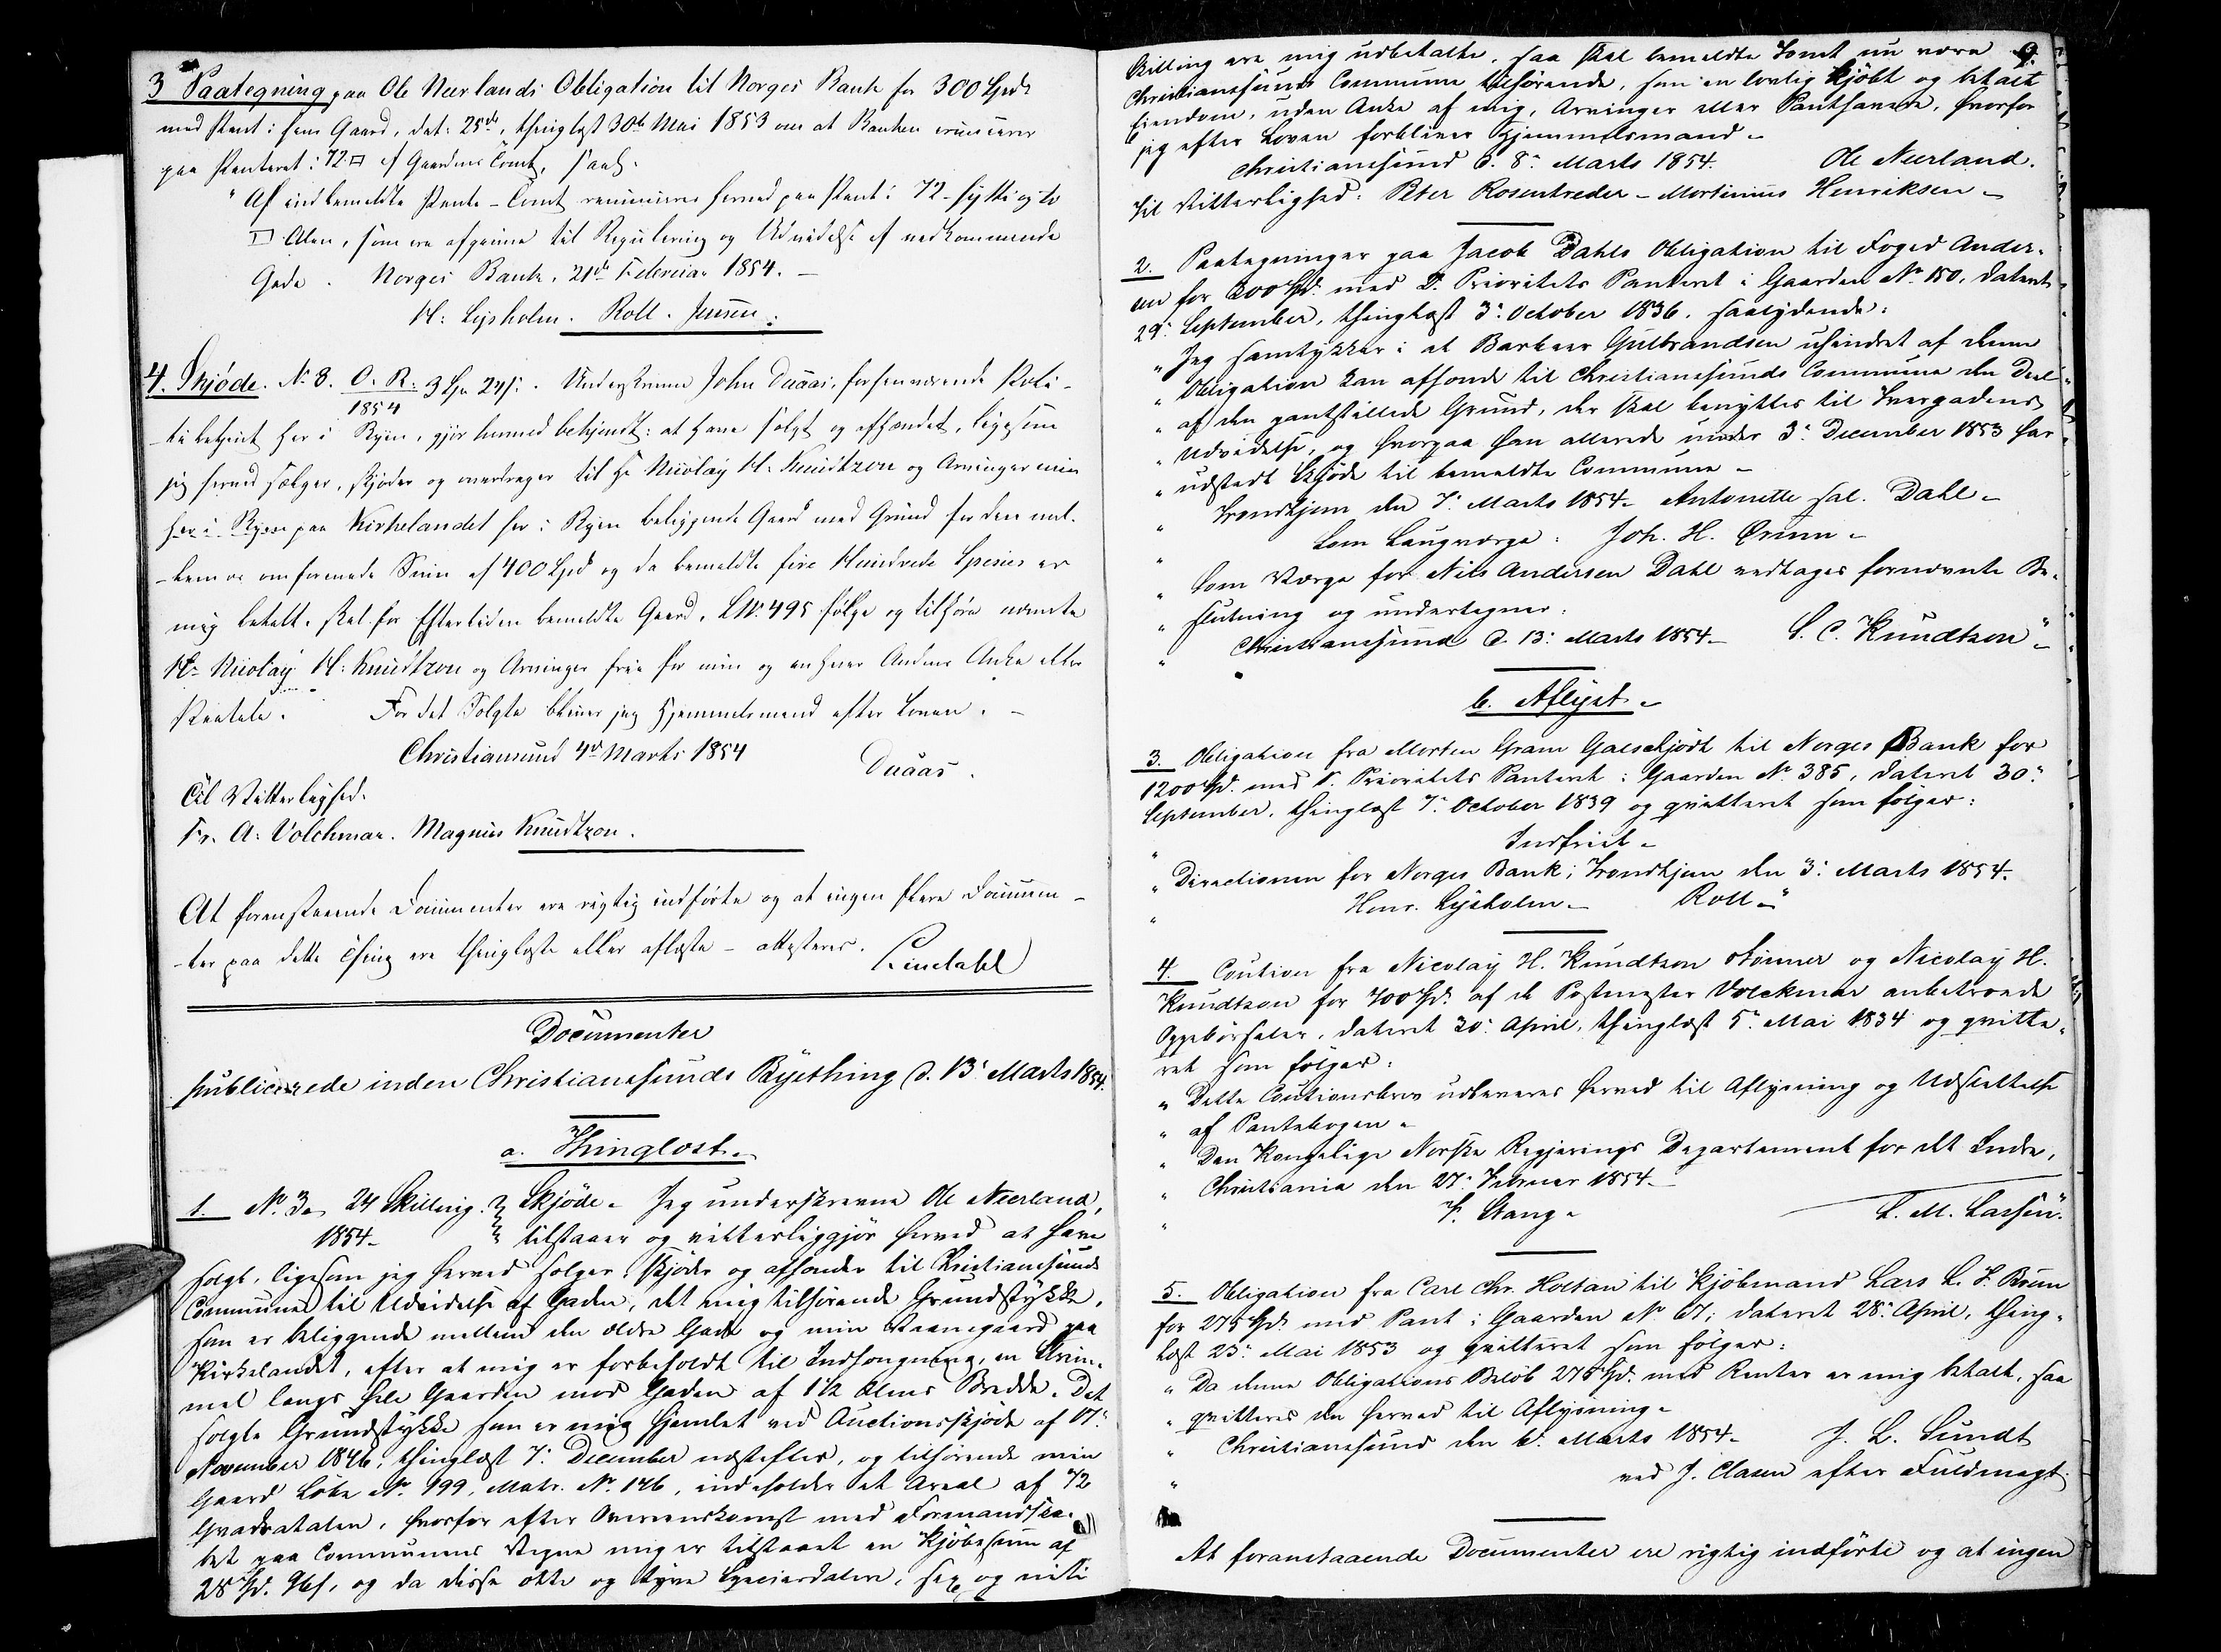 3 Paategning paa Ole Neerlands Obligation til Norges Bank for 300 Spd
med Pant i hans Gaard, dat: 25de, thinglæst 30te Mai 1853 om at Banken renuncerer
paa Panteret i 72 □ af Gaardens Tomt, saal.
" Af indbemeldte Pante-Tomt renunceres herved paa Pant i 72 - sytti og to
□ Alen, som ere afgivne til Regulering og Udvidelse af vedkommende
Gade. Norges Bank, 21de Februar 1854. -
H: Lysholm. Roll. Jensen.
4. Skjøde. No 8. O. R. 3 Sp 24 s. Underskrevne John Duaas, forhenværende Poli-
1854
-tibetjent her i Byen, gjør hermed bekjendt: at have solgt og afhændet, ligesom
jeg herved sælger, skjøder og overdrager til Hr Nicolay H: Knudtzon og Arvinger min
her i Byen paa Kirkelandet her i Byen beliggende Gaard med Grund for den mel-
-lem os omforenede Sum af 400 Spd og da bemeldte fire Hundrede Species er
mig betalt, skal for Eftertiden bemeldte Gaard, LNo 495 følge og tilhøre nævnte
Hr Nicolay H: Knudtzon og Arvinger frie for min og enhver Andens Anke eller
Paatale. For det Solgte bliver jeg Hjemmelsmand efter Loven. -
Christiansund 4de Marts 1854
Duaas.
Til Vitterlighed.
Fr. A: Volckmar. Magnus Knudtzon.
At foranstaaende Documenter ere rigtig indførte og at ingen flere Documen-
-ter paa dette Thing ere thinglæste eller aflæste - attesteres.
Lindahl
Documenter
publicerede inden Christianssunds Byething d. 13: Marts 1854.
a. Thinglæst.
1. No 3. 24 Skilling. Skjøde. Jeg underskrevne Ole Neerland,
1854. tilstaaer og vitterliggjør herved at have
solgt, ligesom jeg herved sælger, skjøder og afhænder til Christianssunds
Commune til Udvidelse af Gaden, det mig tilhørende Grundstykke,
som er beliggende mellem den ældre Gade og min Vaanegaard paa
Kirkelandet, efter at mig er forbeholdt til Indhængning, en Strim-
mel langs hele Gaarden mod Gaden af 1 1/2 Alens Bredde. Det
solgte Grundstykke som er mig hjemlet ved Auctionsskjøde af 17:
November 1846, thinglæst 7: December næstefter, og tilhørende min
Gaard Løbe No 499, Matr. No 146, indeholder et Areal af 72
Qvadratalen, hvorfor efter Overeenskomst med Formandska-
bet paa Communens Vegne mig er tilstaaet en Kjøbesum af
28 Spd. 96 s, og da disse otte og tyve Speciesdaler, sex og niti
9.
Skilling ere mig udbetalte, saa skal bemeldte Tomt nu være
Christianssunds Commune tilhørende, som en lovlig kjøbt og betalt
Eiendom, uden Anke af mig, Arvinger eller Panthavere, hvorfor
jeg efter Loven forbliver Hjemmelsmand.
Christianssund d. 8: Marts 1854. Ole Neerland.
Til Vitterlighed: Peter Rosentreder - Mortinius Henriksen -
2. Paategninger paa Jacob Dahls Obligation til Foged Ander-
sen for 300 Spd. med 2. Prioritets Panteret i Gaarden No 150, dateret
29: September, thinglæst 3: October 1836, saalydende:
" Jeg samtykker i at Barbeer Gulbrandsen uhindret af denne
" Obligation kan afhænde til Christianssunds Commune den Deel
" af den pantstillede Grund, der skal benyttes til Tvergadens
" Udvidelse, og hvorpaa han allerede under 3: December 1853 har
" udstedt Skjøde til bemeldte Commune -
" Trondhjem den 7: Marts 1854 - Antonette sal. Dahl -
" Som Laugværge: Joh. H. Grunn -
" Som Værge for Nils Andersen Dahl vedtages fornævnte Be-
" slutning og undertegner:
" Christianssund d. 13: Marts 1854 - S. C. Knudtzon"
b. Aflyst -
3. Obligation fra Morten Gram Galschjødt til Norges Bank for
1200 Spd. med 1. Prioritets Panteret i Gaarden No 385, dateret 30:
September, thinglæst 7: October 1839 og qvitteret som følger:
" Indfriet -
" Directionen for Norges Bank i Trondhjem den 3: Marts 1854.
" Henr. Lysholm - Roll -"
4. Caution fra Nicolay H. Knudtzon Sønner og Nicolay H.
Knudtzon for 700 Spd. af de Postmester Volckmar anbetroede
Oppebørseler, dateret 30: April, thinglæst 5: Mai 1834 og qvitte-
ret som følger:
" Dette Cautionsbrev udleveres herved til Aflysning og Udslettelse
" af Pantebogen -
" Den Kongelige Norske Regjerings Departement for det Indre,
" Christiania den 27: Februar 1854 -
" F. Stang - L. M. Lassen".
5. Obligation fra Carl Chr. Holtan til Kjøbmand Lars L. S. Bruun
for 275 Spd. med Pant i Gaarden No 67, dateret 28: April, thing-
læst 23: Mai 1853 og qvitteret som følger:
" Da denne Obligations Beløb 275 Spd. med Renter er mig betalt, saa
" qvitteres den herved til Aflysning -
" Christianssund den 6: Marts 1854 - J. L. Sundt
" ved J. Clasen efter Fuldmagt.
At foranstaaende Documenter ere rigtig indførte og at ingen